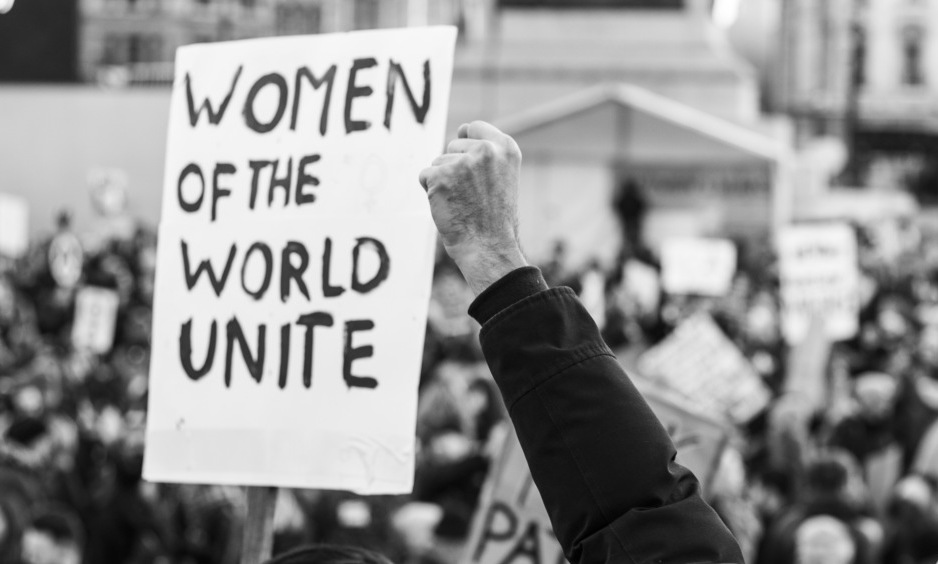 WOMEN
OF THE
WORLD
UNITE
PA